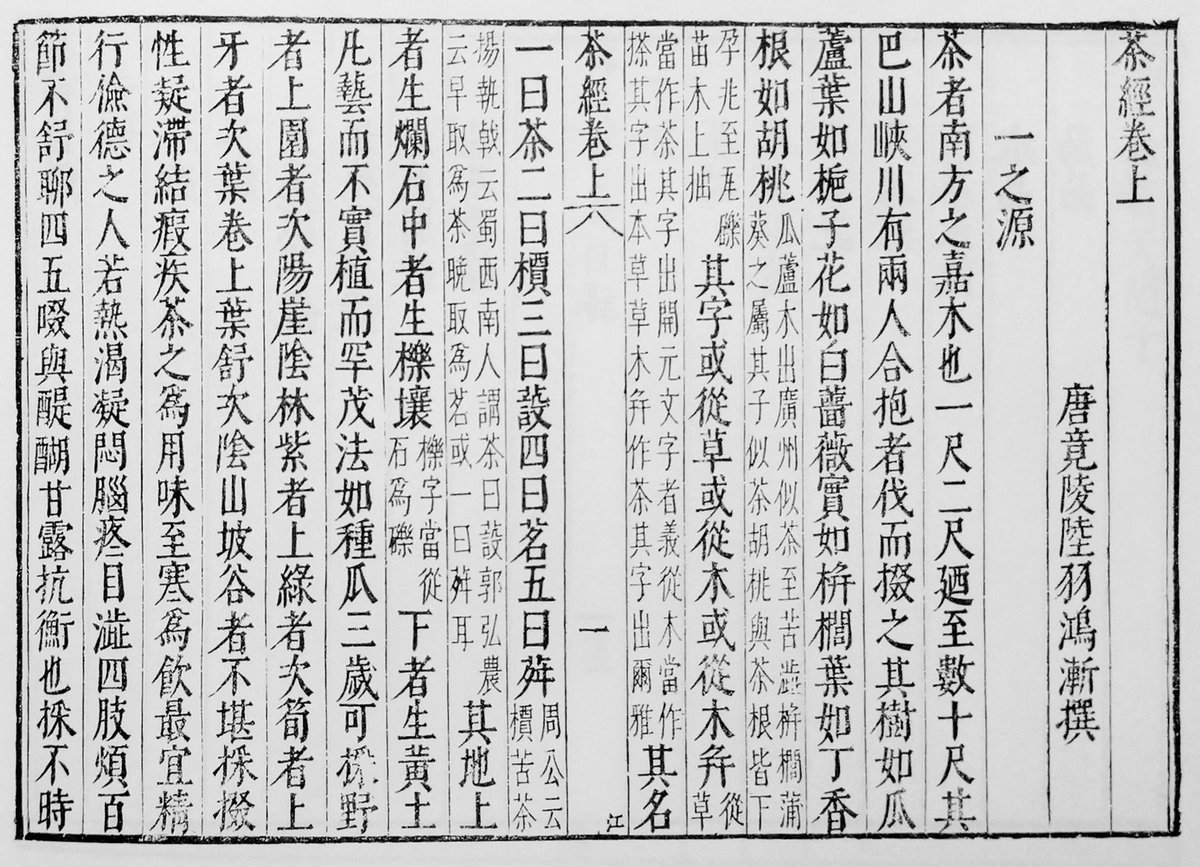 茶經卷上
唐竟陵陸羽鴻漸撰
一之源
茶者南方之嘉木也一尺二尺廼至數十尺其
巴山峽川有兩人合抱者伐而掇之其樹如瓜
蘆葉如梔子花如白薔薇實如栟櫚葉如丁香
根如胡桃瓜蘆木出廣州似茶至苦澁栟櫚蒲葵之屬其子似茶胡桃與茶根皆下
孕兆至瓦礫苗木上抽其字或從草或從木或從木幷從草
當作茶其字出開元文字者義從木當作搽其字出本草草木幷作茶其字出爾雅其名
茶經卷上 一 江
一曰茶二曰檟三曰蔎四曰茗五曰荈周公云檟苦茶
揚執戟云蜀西南人謂茶曰蔎郭弘農云早取爲茶晚取爲茗或一曰荈耳其地上
者生爛石中者生櫟壤櫟字當從石爲礫下者生黃土
凡藝而不實植而罕茂法如種瓜三歲可採野
者上園者次陽崖陰林紫者上綠者次筍者上
牙者次葉卷上葉舒次陰山坡谷者不堪採掇
性凝滯結瘕疾茶之爲用味至寒爲飲最宜精
行儉德之人若熱渴凝悶腦疼目澁四肢煩百
節不舒聊四五啜與醍醐甘露抗衡也採不時